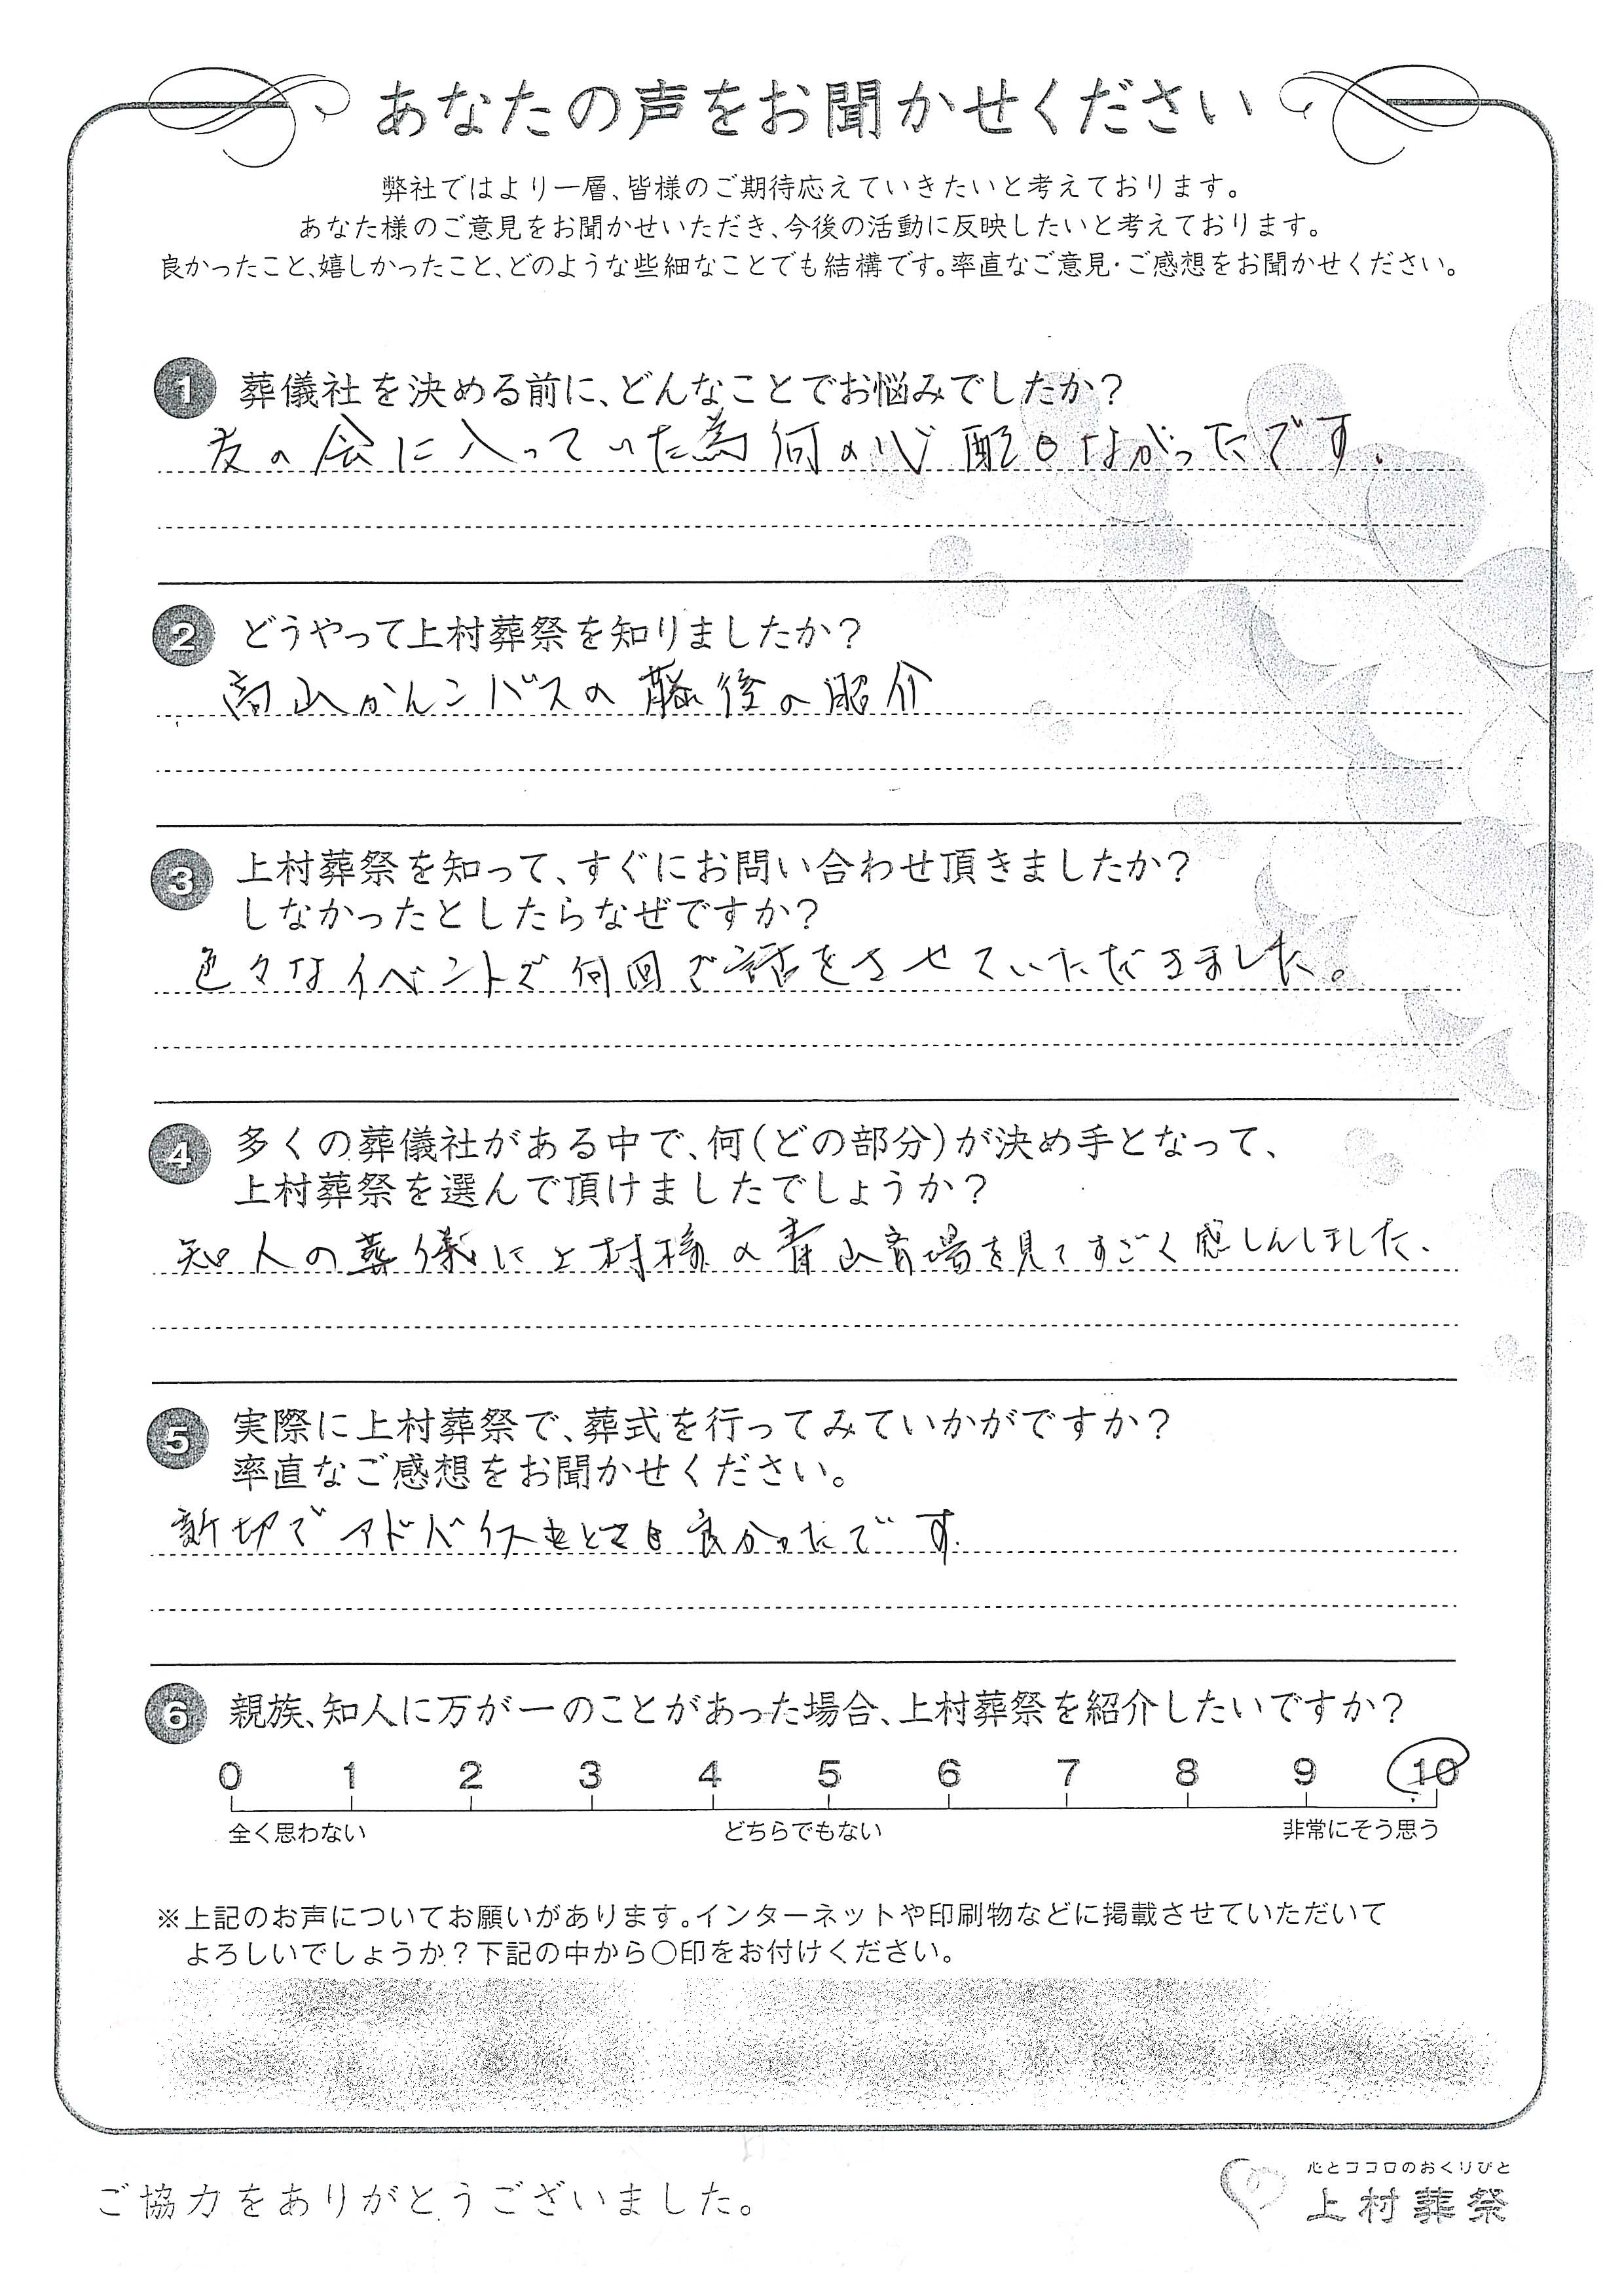 あなたの声をお聞かせください
弊社ではより一層、皆様のご期待応えていきたいと考えております。
あなた様のご意見をお聞かせいただき、今後の活動に反映したいと考えております。
良かったこと、嬉しかったこと、どのような些細なことでも結構です。率直なご意見・ご感想をお聞かせください。
1 葬儀社を決める前に、どんなことでお悩みでしたか?
友の会に入っていた為何の心配もなかったです.
2 どうやって上村葬祭を知りましたか?
高山かんこバスの藤後の紹介
3 上村葬祭を知って、すぐにお問い合わせ頂きましたか?
しなかったとしたらなぜですか?
色々なイベントで何回ご話をさせていただきました。
4 多くの葬儀社がある中で、何(どの部分)が決め手となって、
上村葬祭を選んで頂けましたでしょうか?
知人の葬儀に上村様の青山斎場を見てすごく感しんしました.
5 実際に上村葬祭で、葬式を行ってみていかがですか?
率直なご感想をお聞かせください。
親切でアドバイスもとても良かったです.
6 親族、知人に万が一のことがあった場合、上村葬祭を紹介したいですか?
0 1 2 3 4 5 6 7 8 9 10
全く思わない どちらでもない 非常にそう思う
※上記のお声についてお願いがあります。インターネットや印刷物などに掲載させていただいて
よろしいでしょうか?下記の中から○印をお付けください。
ご協力をありがとうございました。
心とココロのおくりびと
上村葬祭